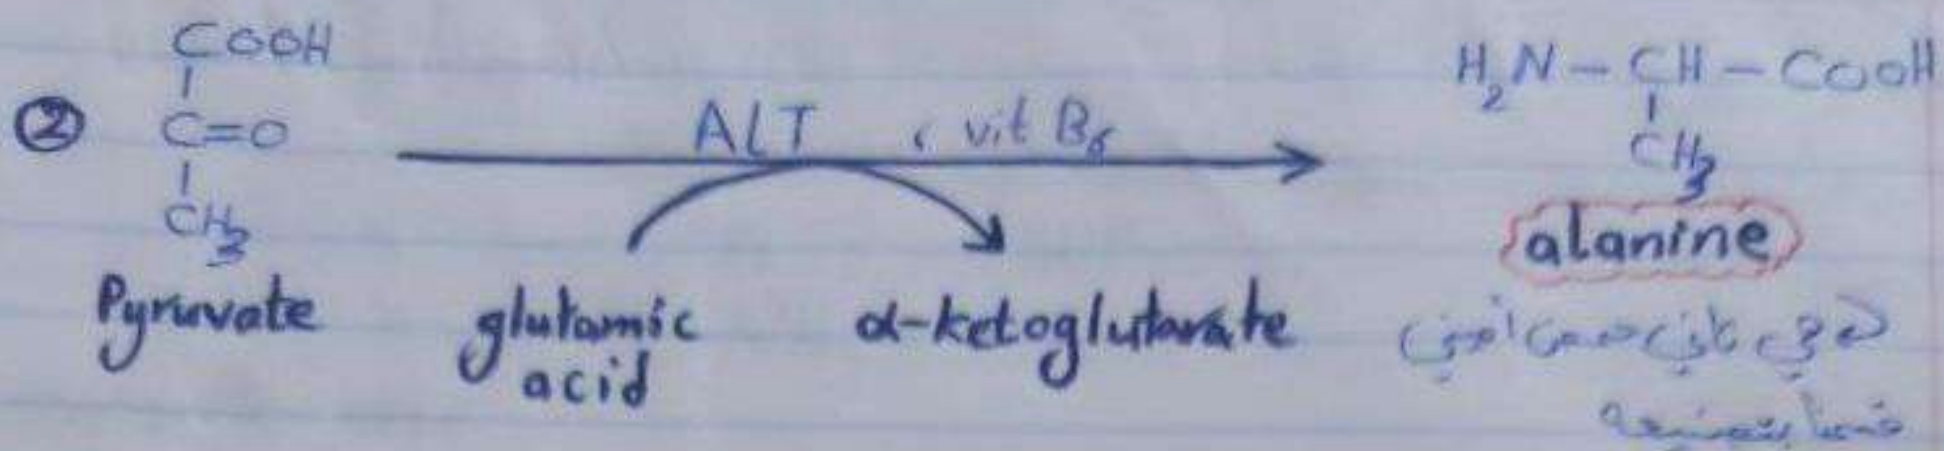 ②
COOH
C=O
CH3
Pyruvate
ALT , vit B6
glutamic
acid
α-ketoglutarate
H2N - CH - COOH
CH3
alanine
تاني حمض أميني
قمنا بتصنيعه